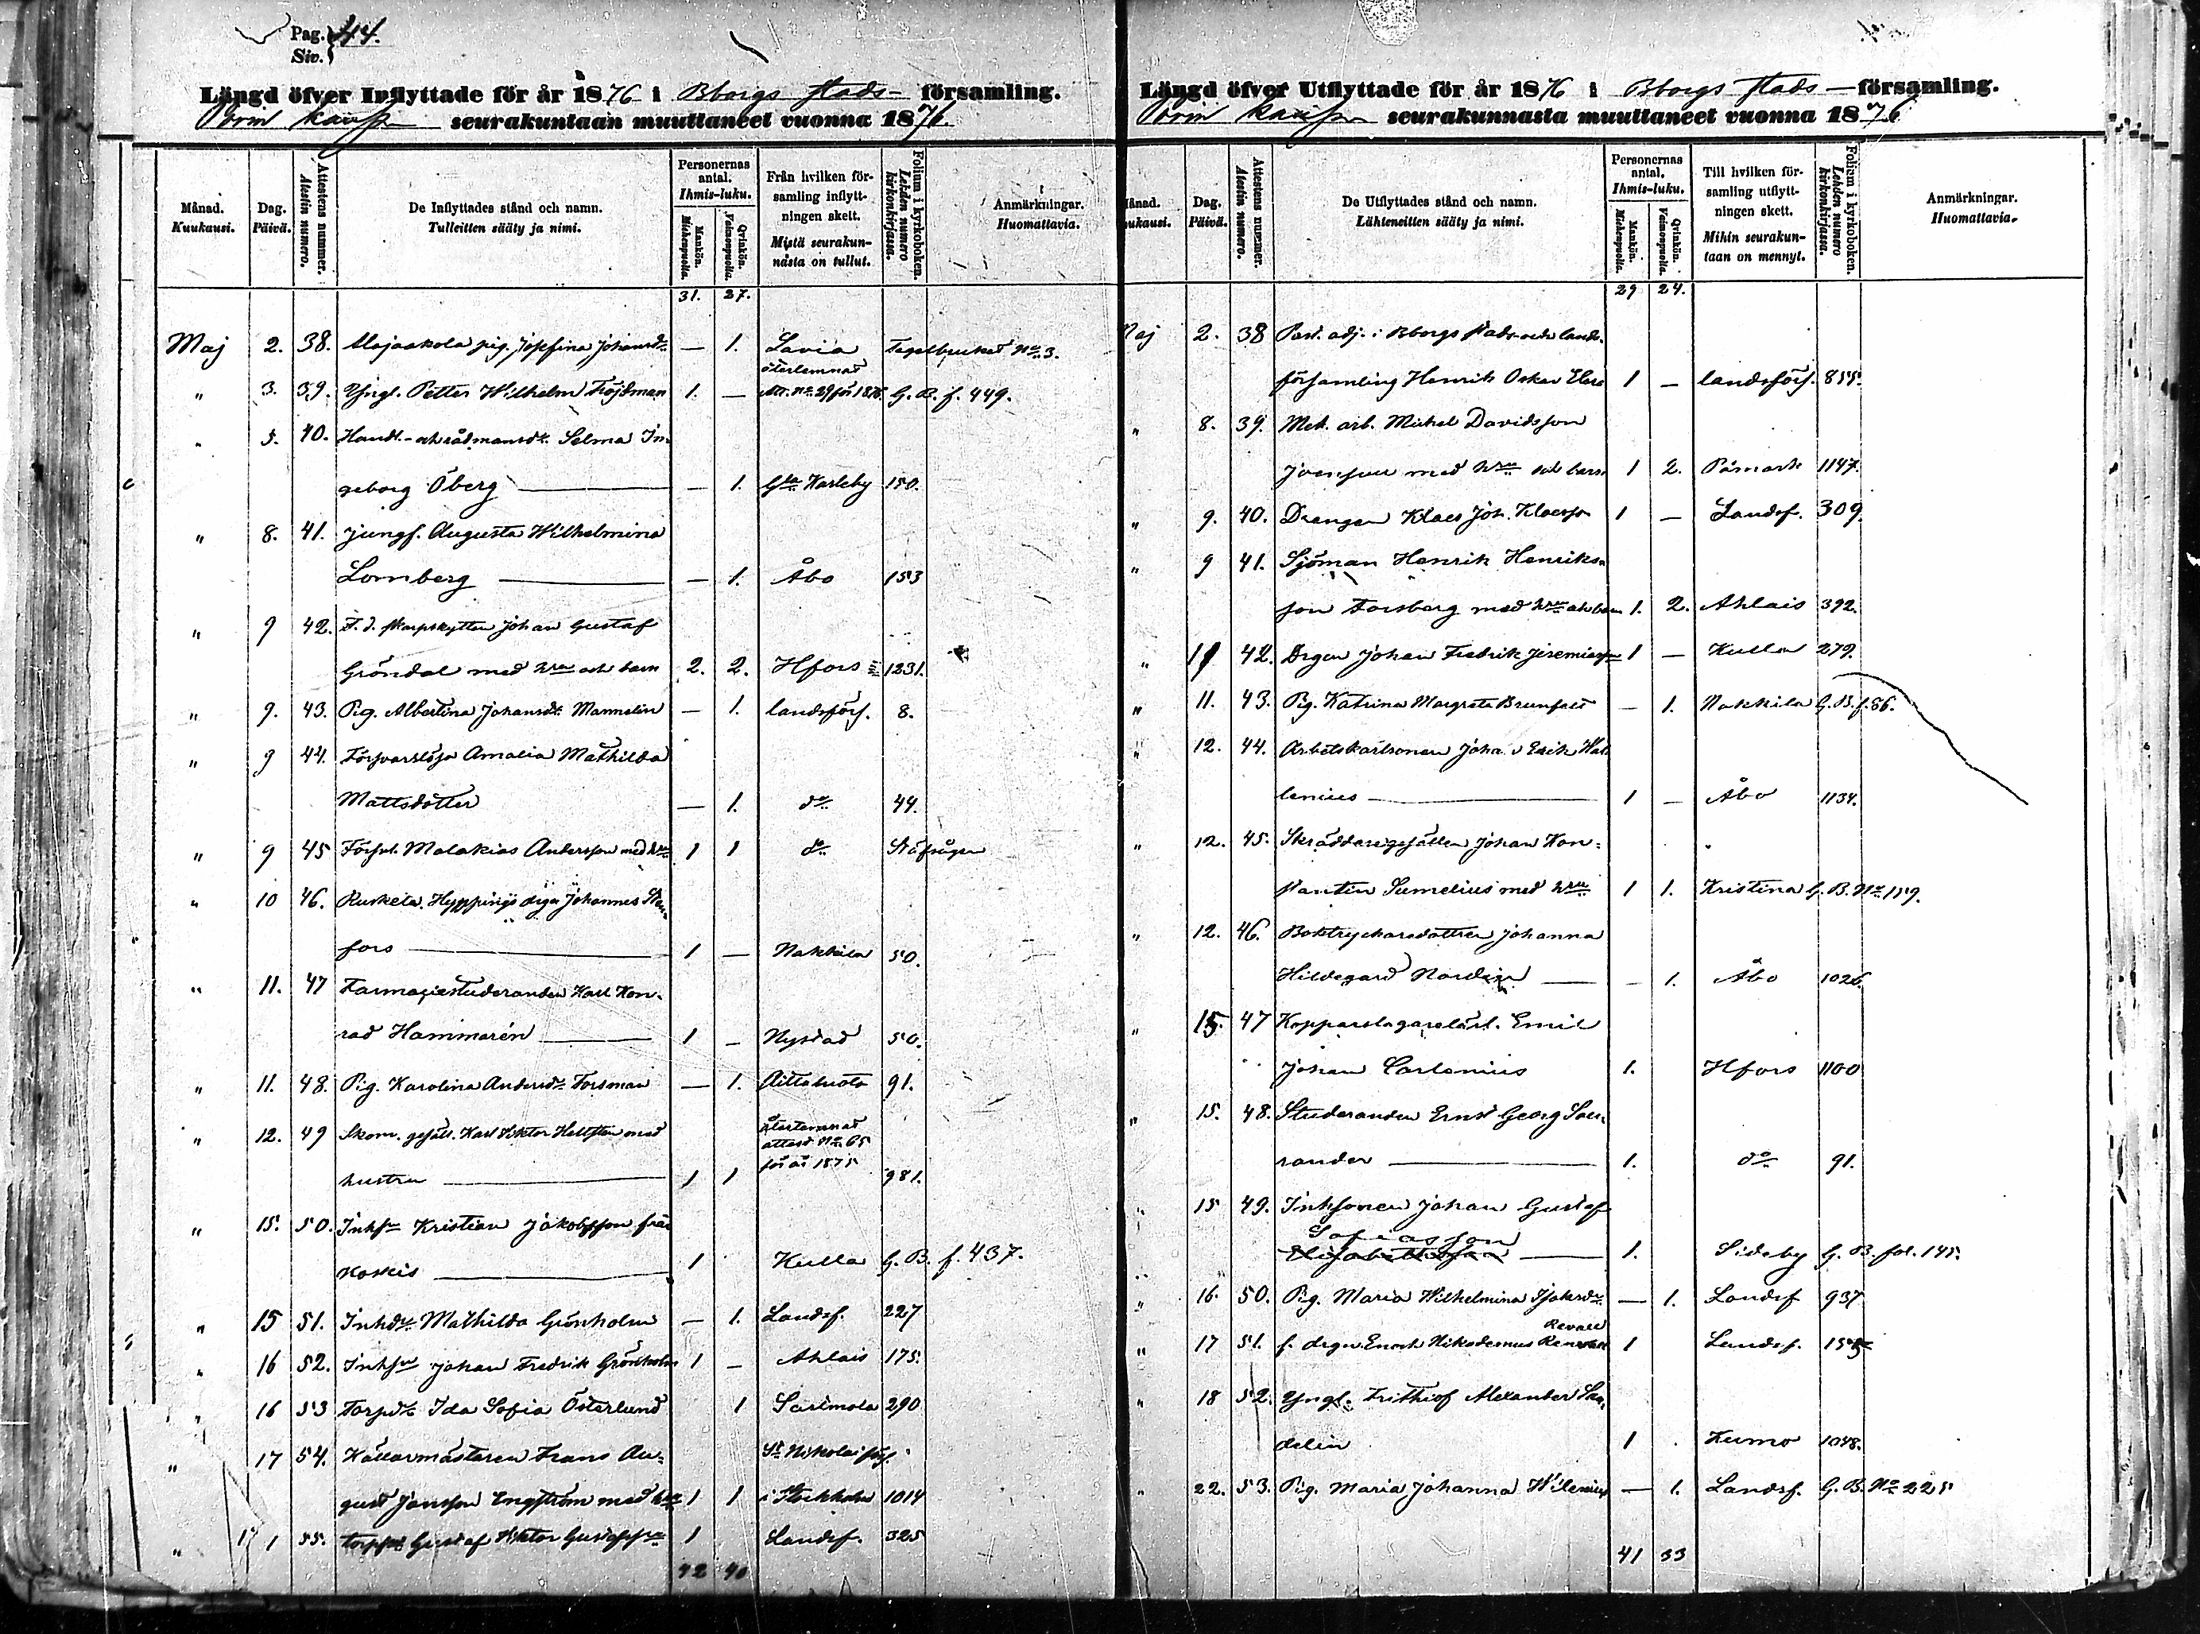 Pag. 44.
Siv.
Längd öfver Inflyttade för år 1876 i Bborgs stads- församling.
Porin kaup seurakuntaan muuttaneet vuonna 1876.
Månad. Kuukausi.
Dag. Päivä.
Attestens nummer. Atestin numero.
De Inflyttades stånd och namn. Tulleitten sääty ja nimi.
Personernas antal. Ihmis-luku.
Mankön. Miehenpuolta.
Qvinkön. Vaimonpuolta.
Från hvilken församling inflyttningen skett. Mistä seurakunnasta on tullut.
Folium i kyrkoboken. Lehden numero kirkonkirjassa.
Anmärkningar. Huomattavia.
31. 27.
Maj 2. 38. pig. Josefina Johansdr — 1. Lavia Tegelbruket No 3.
återlemnad
" 3. 39. Yngl. Petter Wilhelm Fröjdman 1. — Att. No 29 för 1876 G. B. f. 449.
" 5. 40. Handl.- och rådmansdr. Selma In-
geborg Öberg — 1. Gla Karleby 150.
" 8. 41. Jungf. Augusta Wilhelmina
Lornberg — 1. Åbo 153
" 9 42. F. d. skarpskytten Johan Gustaf
Gröndal med hru och barn 2. 2. Hfors 1231.
" 9. 43. Pig. Albertina Johansdr. Mannelin — 1. landsförs. 8.
" 9 44. Försvarslösa Amalia Mathilda
Mattsdotter — 1. do 44.
" 9 45 Försvl. Malakias Andersson med hru 1 1 do
" 10 46. Ruskela Hyppings drgn Johannes Sten-
fors 1 — Nakkila 50.
" 11. 47 Farmaciestuderanden Karl Kon-
rad Hammarén 1 — Nystad 50.
" 11. 48. Pig. Karolina Andersdr Forsman — 1. 91.
" 12. 49 Skom. gesäll. Karl Viktor Hellsten med återlemnad
attest No 65
för år 1875
hustru 1 1 981.
" 15. 50. Inhsn Kristian Jakobsson från
Koskis 1 Kulla G. B. f. 437.
" 15 51. Inhdr Mathilda Grönholm — 1. Landsf. 227
" 16 52. Inhsn Johan Fredrik Grönholm 1 — Ahlais 175.
" 16 53 Torpdr Ida Sofia Österlund 1 Sastmola 290
" 17 54. Källarmästaren Frans Au- St Nikolai förs.
gust Jansson Engström med hru 1 1 i Stockholm 1014
" 1 55. Torpsn Gustaf Viktor Gustafsson 1 Landsf. 325
42 40
Längd öfver Utflyttade för år 1876 i Bborgs stads- församling.
Porin kaup seurakunnasta muuttaneet vuonna 1876
Månad. Kuukausi.
Dag. Päivä.
Attestens nummer. Atestin numero.
De Utflyttades stånd och namn. Lähteneitten sääty ja nimi.
Personernas antal. Ihmis-luku.
Mankön. Miehenpuolta.
Qvinkön. Vaimonpuolta.
Till hvilken församling utflyttningen skett. Mihin seurakuntaan on mennyt.
Folium i kyrkoboken. Lehden numero kirkonkirjassa.
Anmärkningar. Huomattavia.
29 24.
Maj 2. 38 Past. adj. i Bborgs stads- och lands-
församling Henrik Oskar 1 — landsförs. 855.
" 8. 39. Mek. arb. Mickel Davidsson
Joensuu med hru och barn 1 2. Påmark 1147.
" 9. 40. Drengen Klaes Joh. Klaesson 1 — Landsf. 309.
" 9 41. Sjöman Henrik Henriks-
son Forsberg med hru och barn 1. 2. Ahlais 392.
" 11 42. Drgen Johan Fredrik Jeremiasson 1 — Kulla 279.
" 11. 43. Pig. Katrina Margreta — 1. Nakkila G. B. f. 86.
" 12. 44. Arbetskarlsonen Johan Erik Wal-
lenius 1 — Åbo 1134.
" 12. 45. Skräddaregesällen Johan Kon-
stantin Sumelius med hru 1 1. Kristina G. B. No 159.
" 12. 46. Boktryckaredottren Johanna
Hildegard Nordgren — 1. Åbo 1026.
" 15. 47 Kopparslagarelärl. Emil
Johan Carlenius 1. Hfors 1100
" 15. 48. Studeranden Ernst Georg Sou-
rander 1. do 91.
" 15 49. Inhsonen Johan Gustaf
Sofiasson
Elisabethsson 1. Sideby G. B. fol. 145.
" 16. 50. Pig. Maria Wilhelmina Isaksdr. — 1. Landsf 937
Revall
" 17 51. f. drgn Enok Nikodemus 1 Landsf. 155
" 18 52. Yngl. Frithiof Alexander San-
delin 1 Kumo 1048.
" 22. 53. Pig. Maria Johanna Wilenius — 1. Landsf. G. B. No 225
41 33